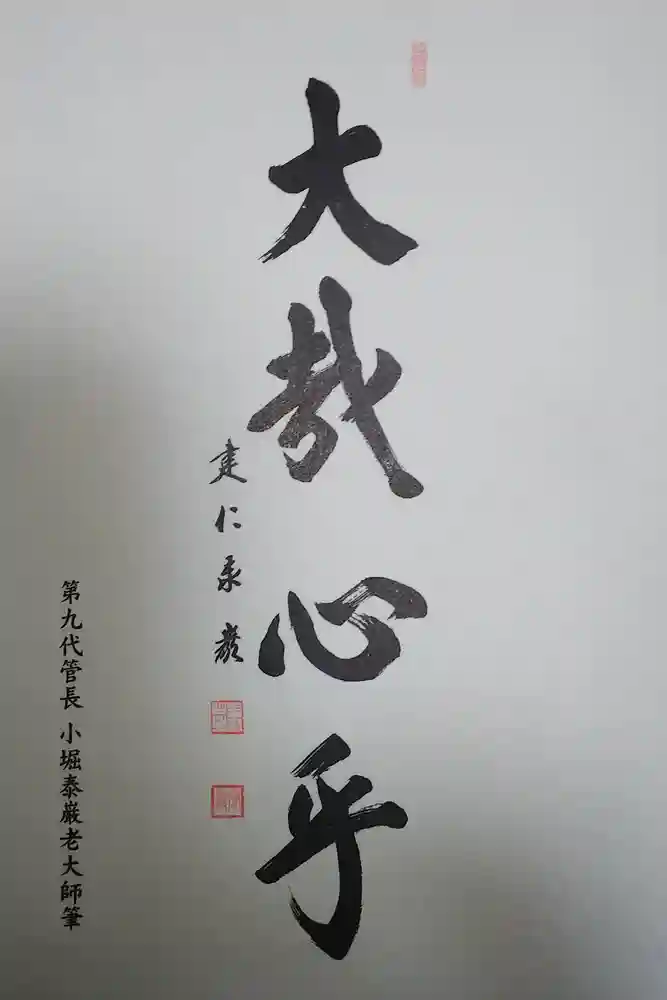 大哉心乎
建仁泰巖
第九代管長 小堀泰巌老大師筆